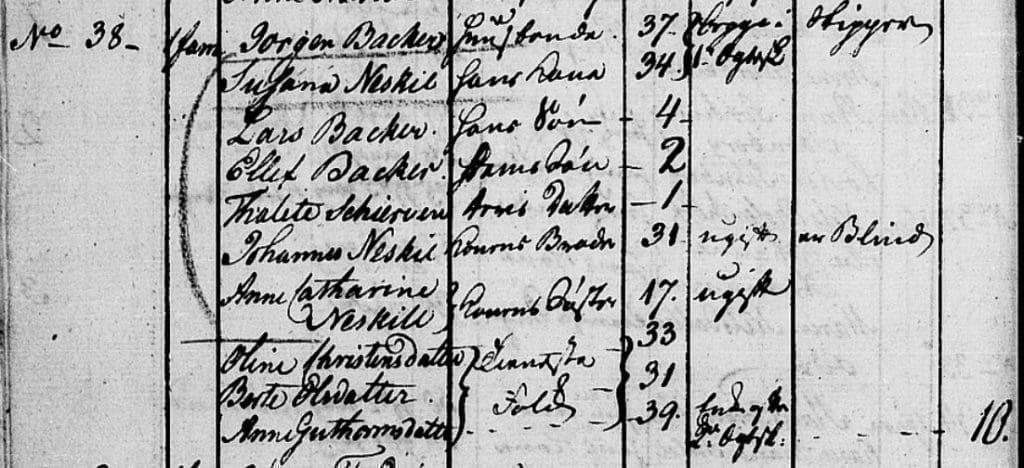 No 38- 1 fam Jørgen Backer Huusbonde 37. begge i Skipper
Susana Neskil hans Kone 34. 1. Egtesk.
Lars Backer. hans Søn - 4-
Ellef Backer hans Søn - 2
Thalete Schierven deres Datter - 1-
Johannes Neskil Konens Broder 31 ugift er Blind
Anne Catharine
Neskill Konens Søster 17. ugift
Oline Christensdatter 33
Berte Olsdatter. Tieneste Folk 31
Anne Guthormsdatter 39. Enke efter
2. Egtesk: 10.